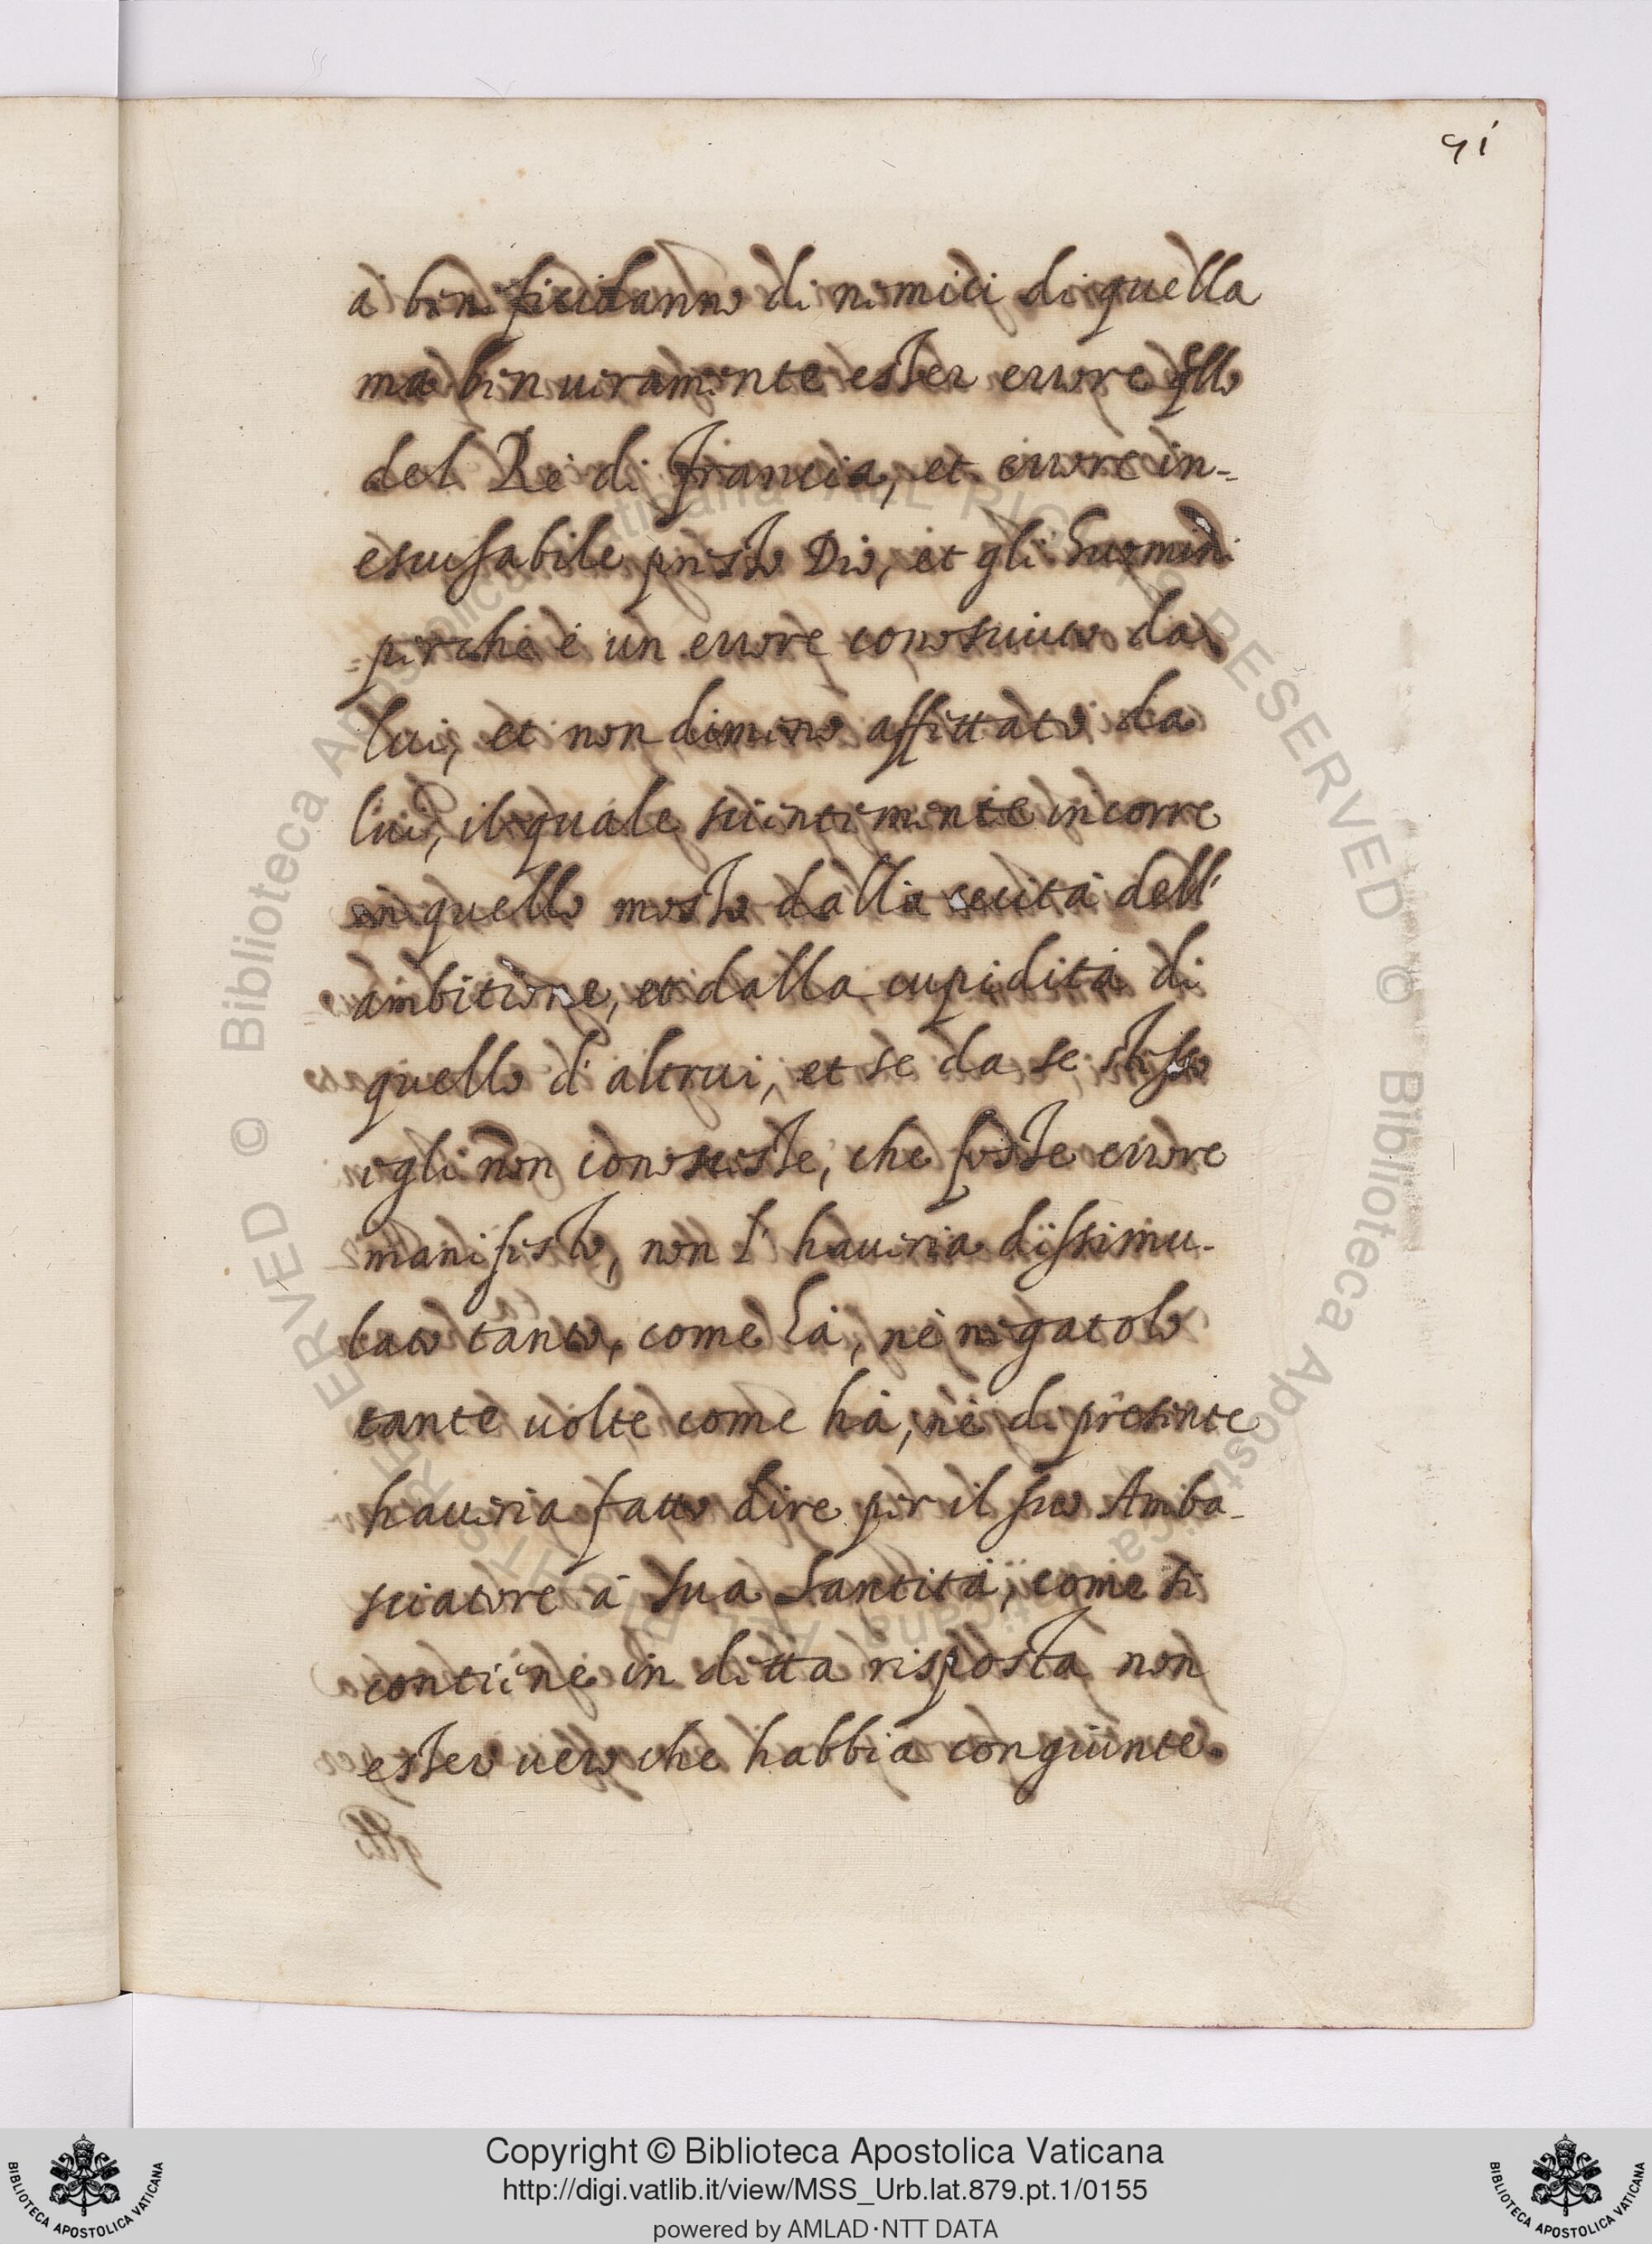 91
à beneficio, danno di nemici di quella
ma ben ueramente esser errore qllo
del Re di Francia, et errore in-
escusabile presso Dio, et gli huomini
perche è un errore conosciuto da
lui, et non dimeno affettato da
lui, il quale scientemente incorre
in quello mosso dalla cecità dell'
ambitione, et dalla cupidità di
quello d'altrui, et se da se stesso
egli non conoscesse, che fosse errore
manifesto, non l'haueria dissimu-
lato tanto, come hà, nè negatolo
tante uolte come hà, nè di presente
haueria fatto dire per il suo Amba-
sciatore à Sua Santità, come si
contiene in detta risposta non
esser uero che habbia congiunte
Copyright © Biblioteca Apostolica Vaticana
http://digi.vatlib.it/view/MSS_Urb.lat.879.pt.1/0155
powered by AMLAD·NTT DATA
BIBLIOTECA APOSTOLICA VATICANA
BIBLIOTECA APOSTOLICA VATICANA